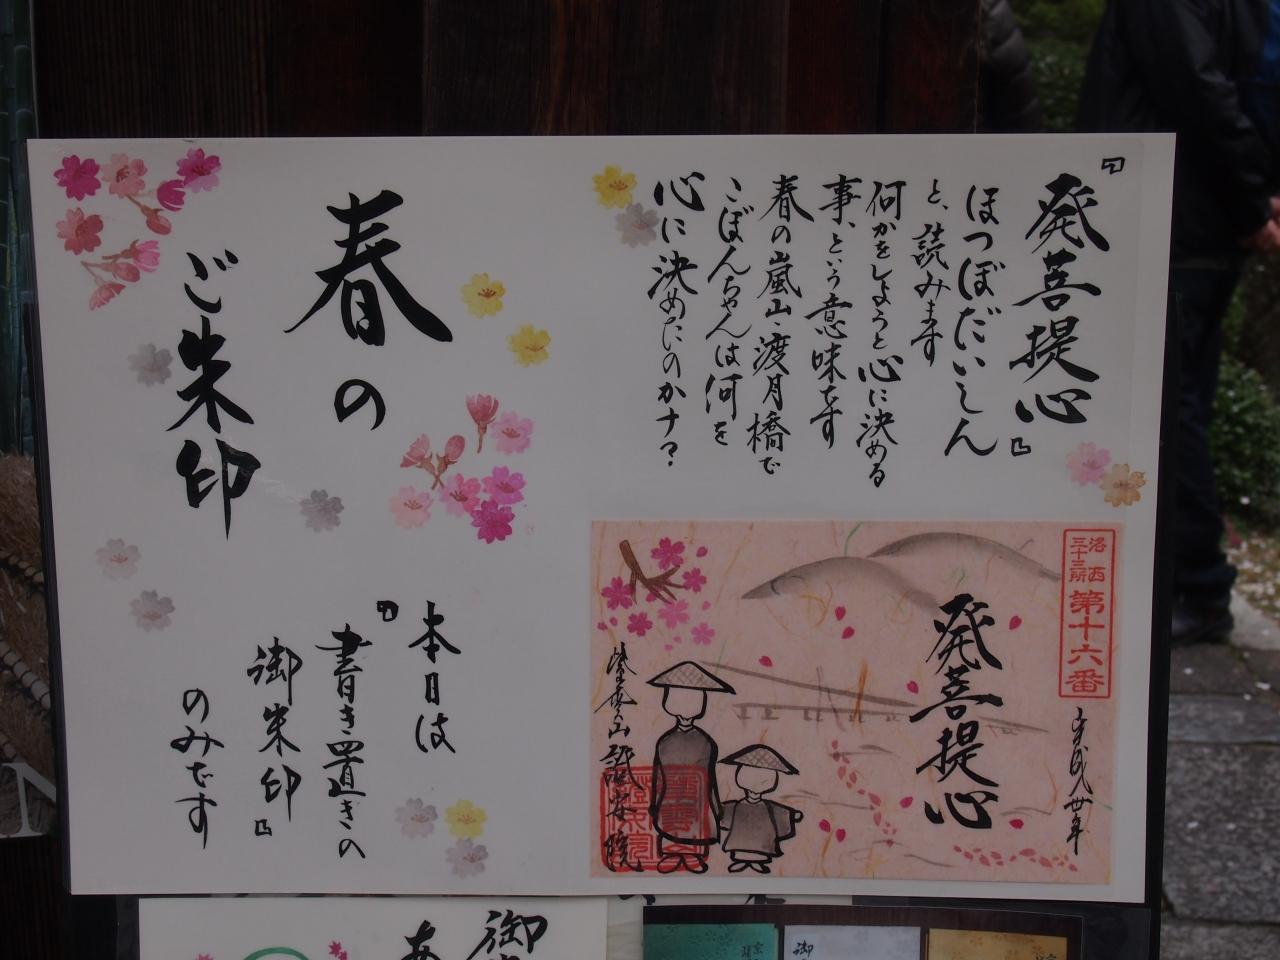 『発菩提心』
ほつぼだいしん
と、読みます
何かをしようと心に決める
事、という意味です
春の嵐山・渡月橋で
こぼんちゃんは何を
心に決めたのカナ?
春の
ご朱印
本日は
『書き置きの
御朱印』
のみです
洛西
三十三所
第十六番
平成卅年
発菩提心